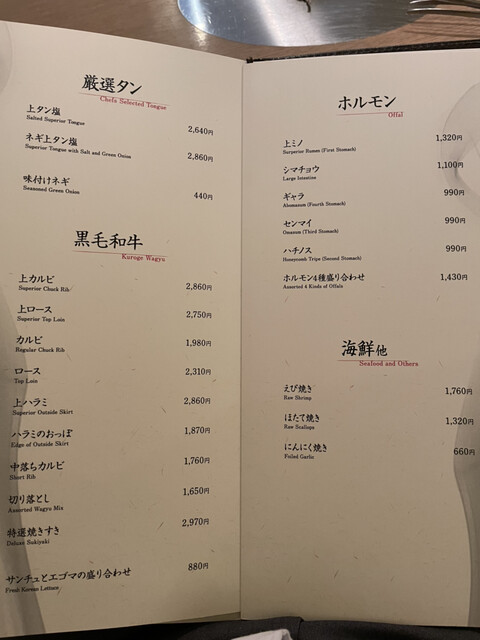 厳選タン
Chefs Selected Tongue
上タン塩 2,640円
Salted Superior Tongue
ネギ上タン塩 2,860円
Superior Tongue with Salt and Green Onion
味付けネギ 440円
Seasoned Green Onion
黒毛和牛
Kuroge Wagyu
上カルビ 2,860円
Superior Chuck Rib
上ロース 2,750円
Superior Top Loin
カルビ 1,980円
Regular Chuck Rib
ロース 2,310円
Top Loin
上ハラミ 2,860円
Superior Outside Skirt
ハラミのおっぽ 1,870円
Edge of Outside Skirt
中落ちカルビ 1,760円
Short Rib
切り落とし 1,650円
Assorted Wagyu Mix
特選焼きすき 2,970円
Deluxe Sukiyaki
サンチュとエゴマの盛り合わせ 880円
Fresh Korean Lettuce
ホルモン
Offal
上ミノ 1,320円
Surperior Rumen (First Stomach)
シマチョウ 1,100円
Large Intestine
ギャラ 990円
Abomasum (Fourth Stomach)
センマイ 990円
Omasum (Third Stomach)
ハチノス 990円
Honeycomb Tripe (Second Stomach)
ホルモン4種盛り合わせ 1,430円
Assorted 4 Kinds of Offals
海鮮他
Seafood and Others
えび焼き 1,760円
Raw Shrimp
ほたて焼き 1,320円
Raw Scallops
にんにく焼き 660円
Foiled Garlic